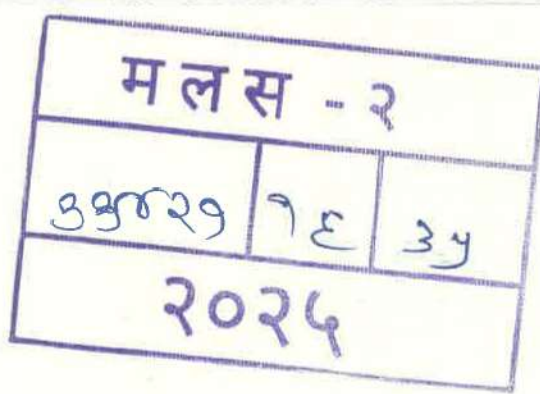 मलस - २
३३४२९ १६ ३५
२०२५